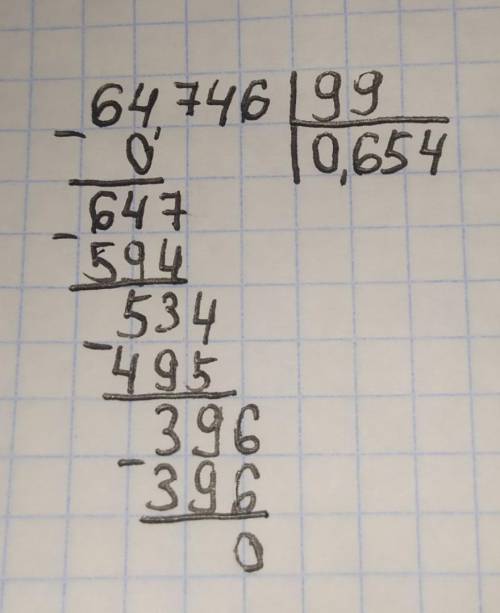 64,746 | 99
- 0 | 0,654
647
- 594
534
- 495
396
- 396
0